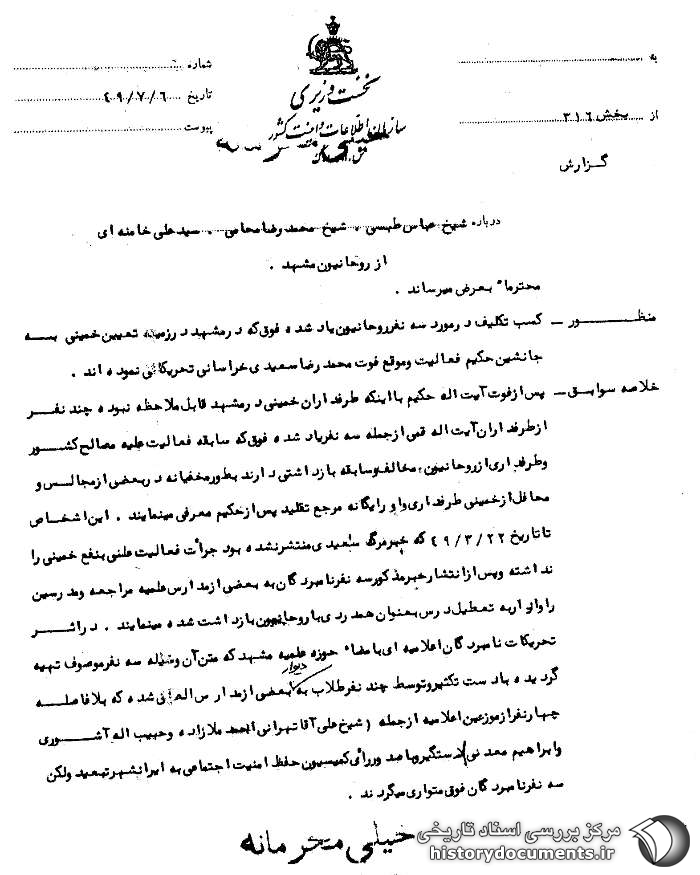 نخست وزیری
سازمان اطلاعات و امنیت کشور
س.ا.و.ا.ک
به
از بخش ۳۱۶
شماره
تاریخ ۴۹/۷/۶
پیوست
گزارش
درباره شیخ عباس طبسی . شیخ محمد رضا محامی . سید علی خامنه ای
از روحانیون مشهد .
محترماً بعرض میرساند .
منظور ــ کسب تکلیف در مورد سه نفر روحانیون یاد شده فوق که در مشهد در زمینه تعیین خمینی به
جانشین حکیم فعالیت و موقع فوت محمد رضا سعیدی خراسانی تحریکاتی نموده اند .
خلاصه سوابق ــ پس از فوت آیت اله حکیم با اینکه طرفداران خمینی در مشهد قابل ملاحظه نبوده چند نفر
از طرفداران آیت اله قمی از جمله سه نفر یاد شده فوق که سابقه فعالیت علیه مصالح کشور
و طرفداری از روحانیون مخالف و سابقه بازداشتی دارند بطور مخفیانه در بعضی از مجالس و
محافل از خمینی طرفداری و او را یگانه مرجع تقلید پس از حکیم معرفی مینمایند . این اشخاص
تا تاریخ ۴۹/۳/۲۲ که خبر مرگ سعیدی منتشر نشده بود جرأت فعالیت علنی بنفع خمینی را
نداشته و پس از انتشار خبر مذکور سه نفر نامبردگان به بعضی از مدارس علمیه مراجعه و مدرسین
را وادار به تعطیل درس بعنوان همدردی با روحانیون بازداشت شده مینمایند . در اثر
تحریکات نامبردگان اعلامیه ای بامضاء حوزه علمیه مشهد که متن آن وسیله سه نفر موصوف تهیه
گردیده با دست تکثیر و توسط چند نفر طلاب به دیوار بعضی از مدارس الصاق شده که بلافاصله
چهار نفر از موزعین اعلامیه از جمله شیخ علی آقا تهرانی احمد ملازاده و حبیب اله آشوری
و ابراهیم معدنی دستگیر و با صدور رأی کمیسیون حفظ امنیت اجتماعی به ایرانشهر تبعید ولکن
سه نفر نامبردگان فوق متواری میگردند .
خیلی محرمانه
مرکز بررسی اسناد تاریخی
historydocuments.ir